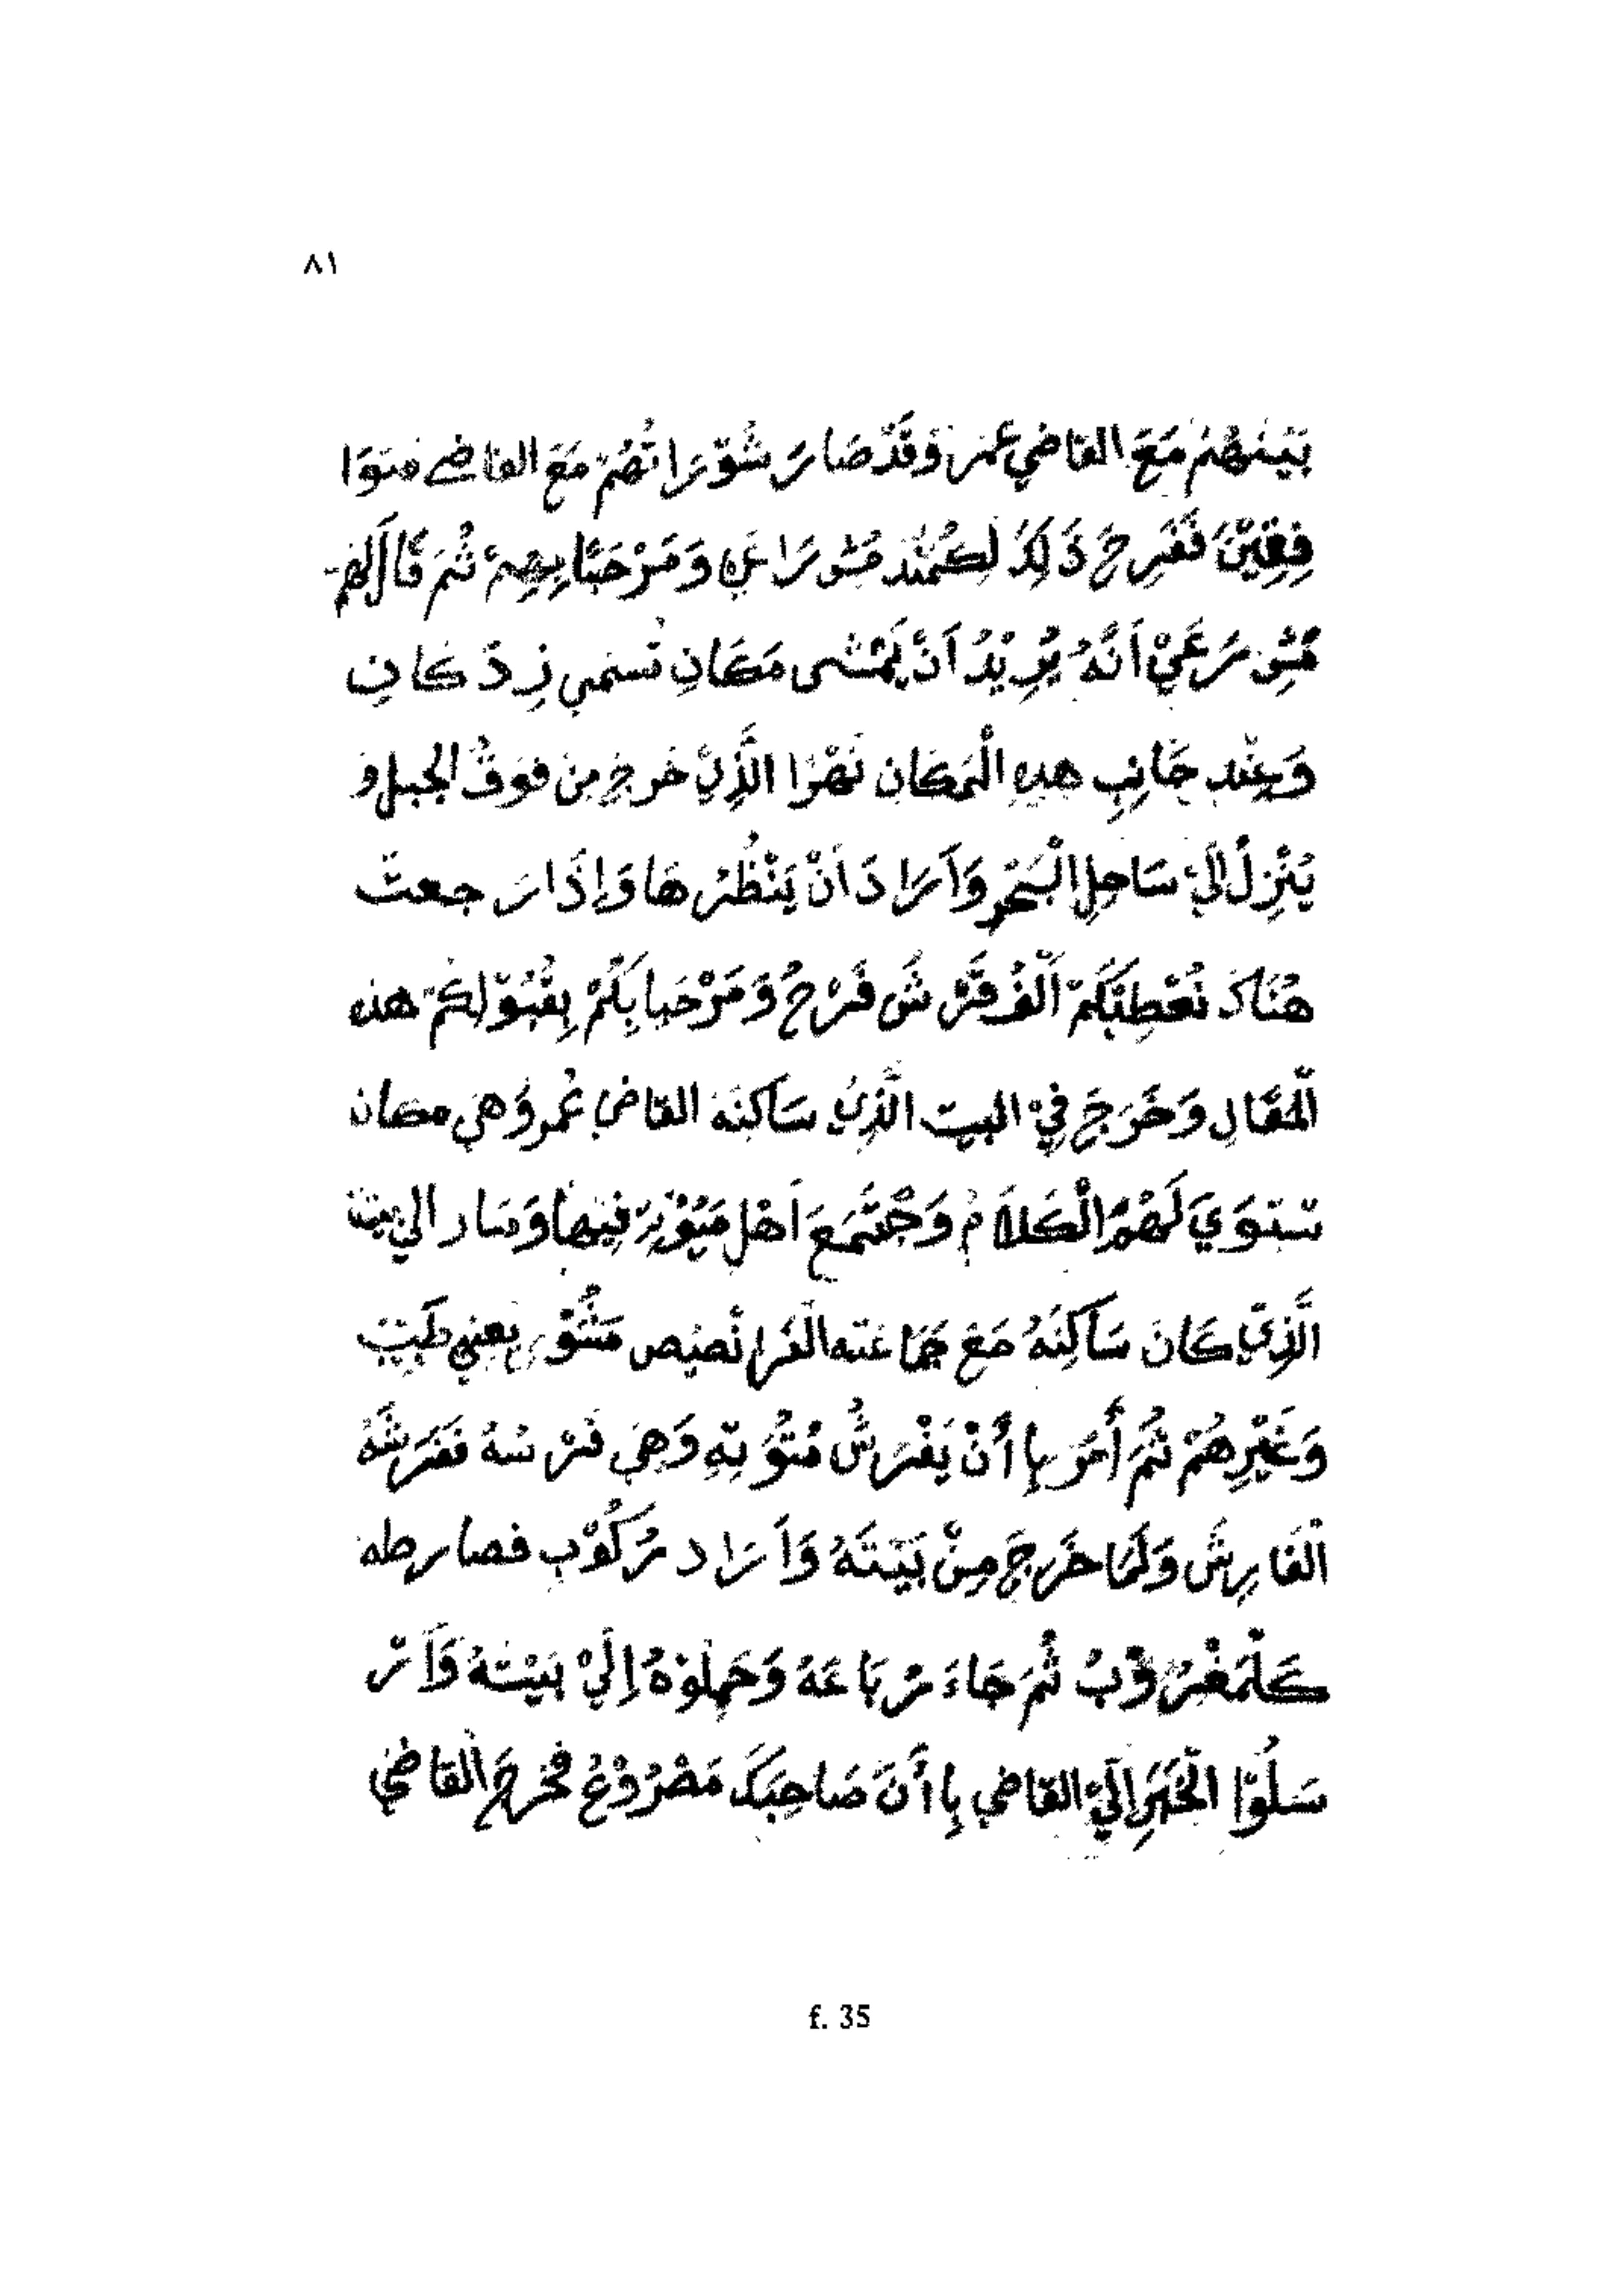 ٨١
بَيْنَهُمْ مَعَ القاضي عمر وَقَدْ صَارَ شَوْرَاتُهُمْ مَعَ القاضي متوَا
فِقِيْنَ فَفَرِحَ ذَلِكَ لكُمَنْدَ مُشِرَاعَلِ وَمَرْحَبًا بِهِمْ ثُمَ قَالَ لَهُمْ
مُشِرَعَلِيْ اَنَّهُ يُرِيْدُ اَنْ يَمْشى مَكَانِ تُسَمي زِدَكَانِ
وَعِنْدِ جَانِبِ هذِهِ الْمَكَانِ نَهْرَا الَّذِيْ خَرجَ مِنْ فَوْقُ الجبل و
يَنْزِلُ اِلَيْ سَاحِلِ الْبَحْرِ وَاَرَادَ اَنْ يَنْظُرْهَا وَاِذَا رَجعتْ
هُنَاكَ نُعْطِيْكُمْ اَلْفُ قَرْشَ فَرْحُ وَمَرْحَبا بِكُمْ بِقُبُوْلِكُمْ هذه
الْمَقَالِ وَخَرَجَ فِيْ البيت الَّذِيْ سَاكِنَهُ القاضي عُمر وَهِيَ مكان
تستوَيَ لَهُمُ الْكَلاَمُ وَجْتَمَعَ اَهْل مَيُوْتِ فيها وَسار الي بيت
الَّذِيْ كَانَ سَاكِنَهُ مَعْ جَمَاعَته الفَرانْصِيْص مَشُوْر يعني طَبِيْب
وَغَيْرِهُمْ ثُمَّ أَمَرَ بِاأَنْ يَفْرَشُ مُتُوْبِةِ وَهِيَ فَرْسَهُ فَفَرَشَهُ
الْفَارِشَ وَلَمَا خَرَجَ مِنْ بَيْتَهُ وَاَرَاد رُكُوْبِ فصارطه
كَلْمَضْرُوْبُ ثُمَ جَاءَ رُبَاعَهُ وَحَمِلُوْهُ اِلَيْ بَيْتَهُ وَاَرْ
سَلُوْا الْخَبَرِ اِلَيْ القاضي بِاأَنَ صَاحِبَكَ مَصْرُوْعُ فخرجَ الْقاضِيْ
f. 35